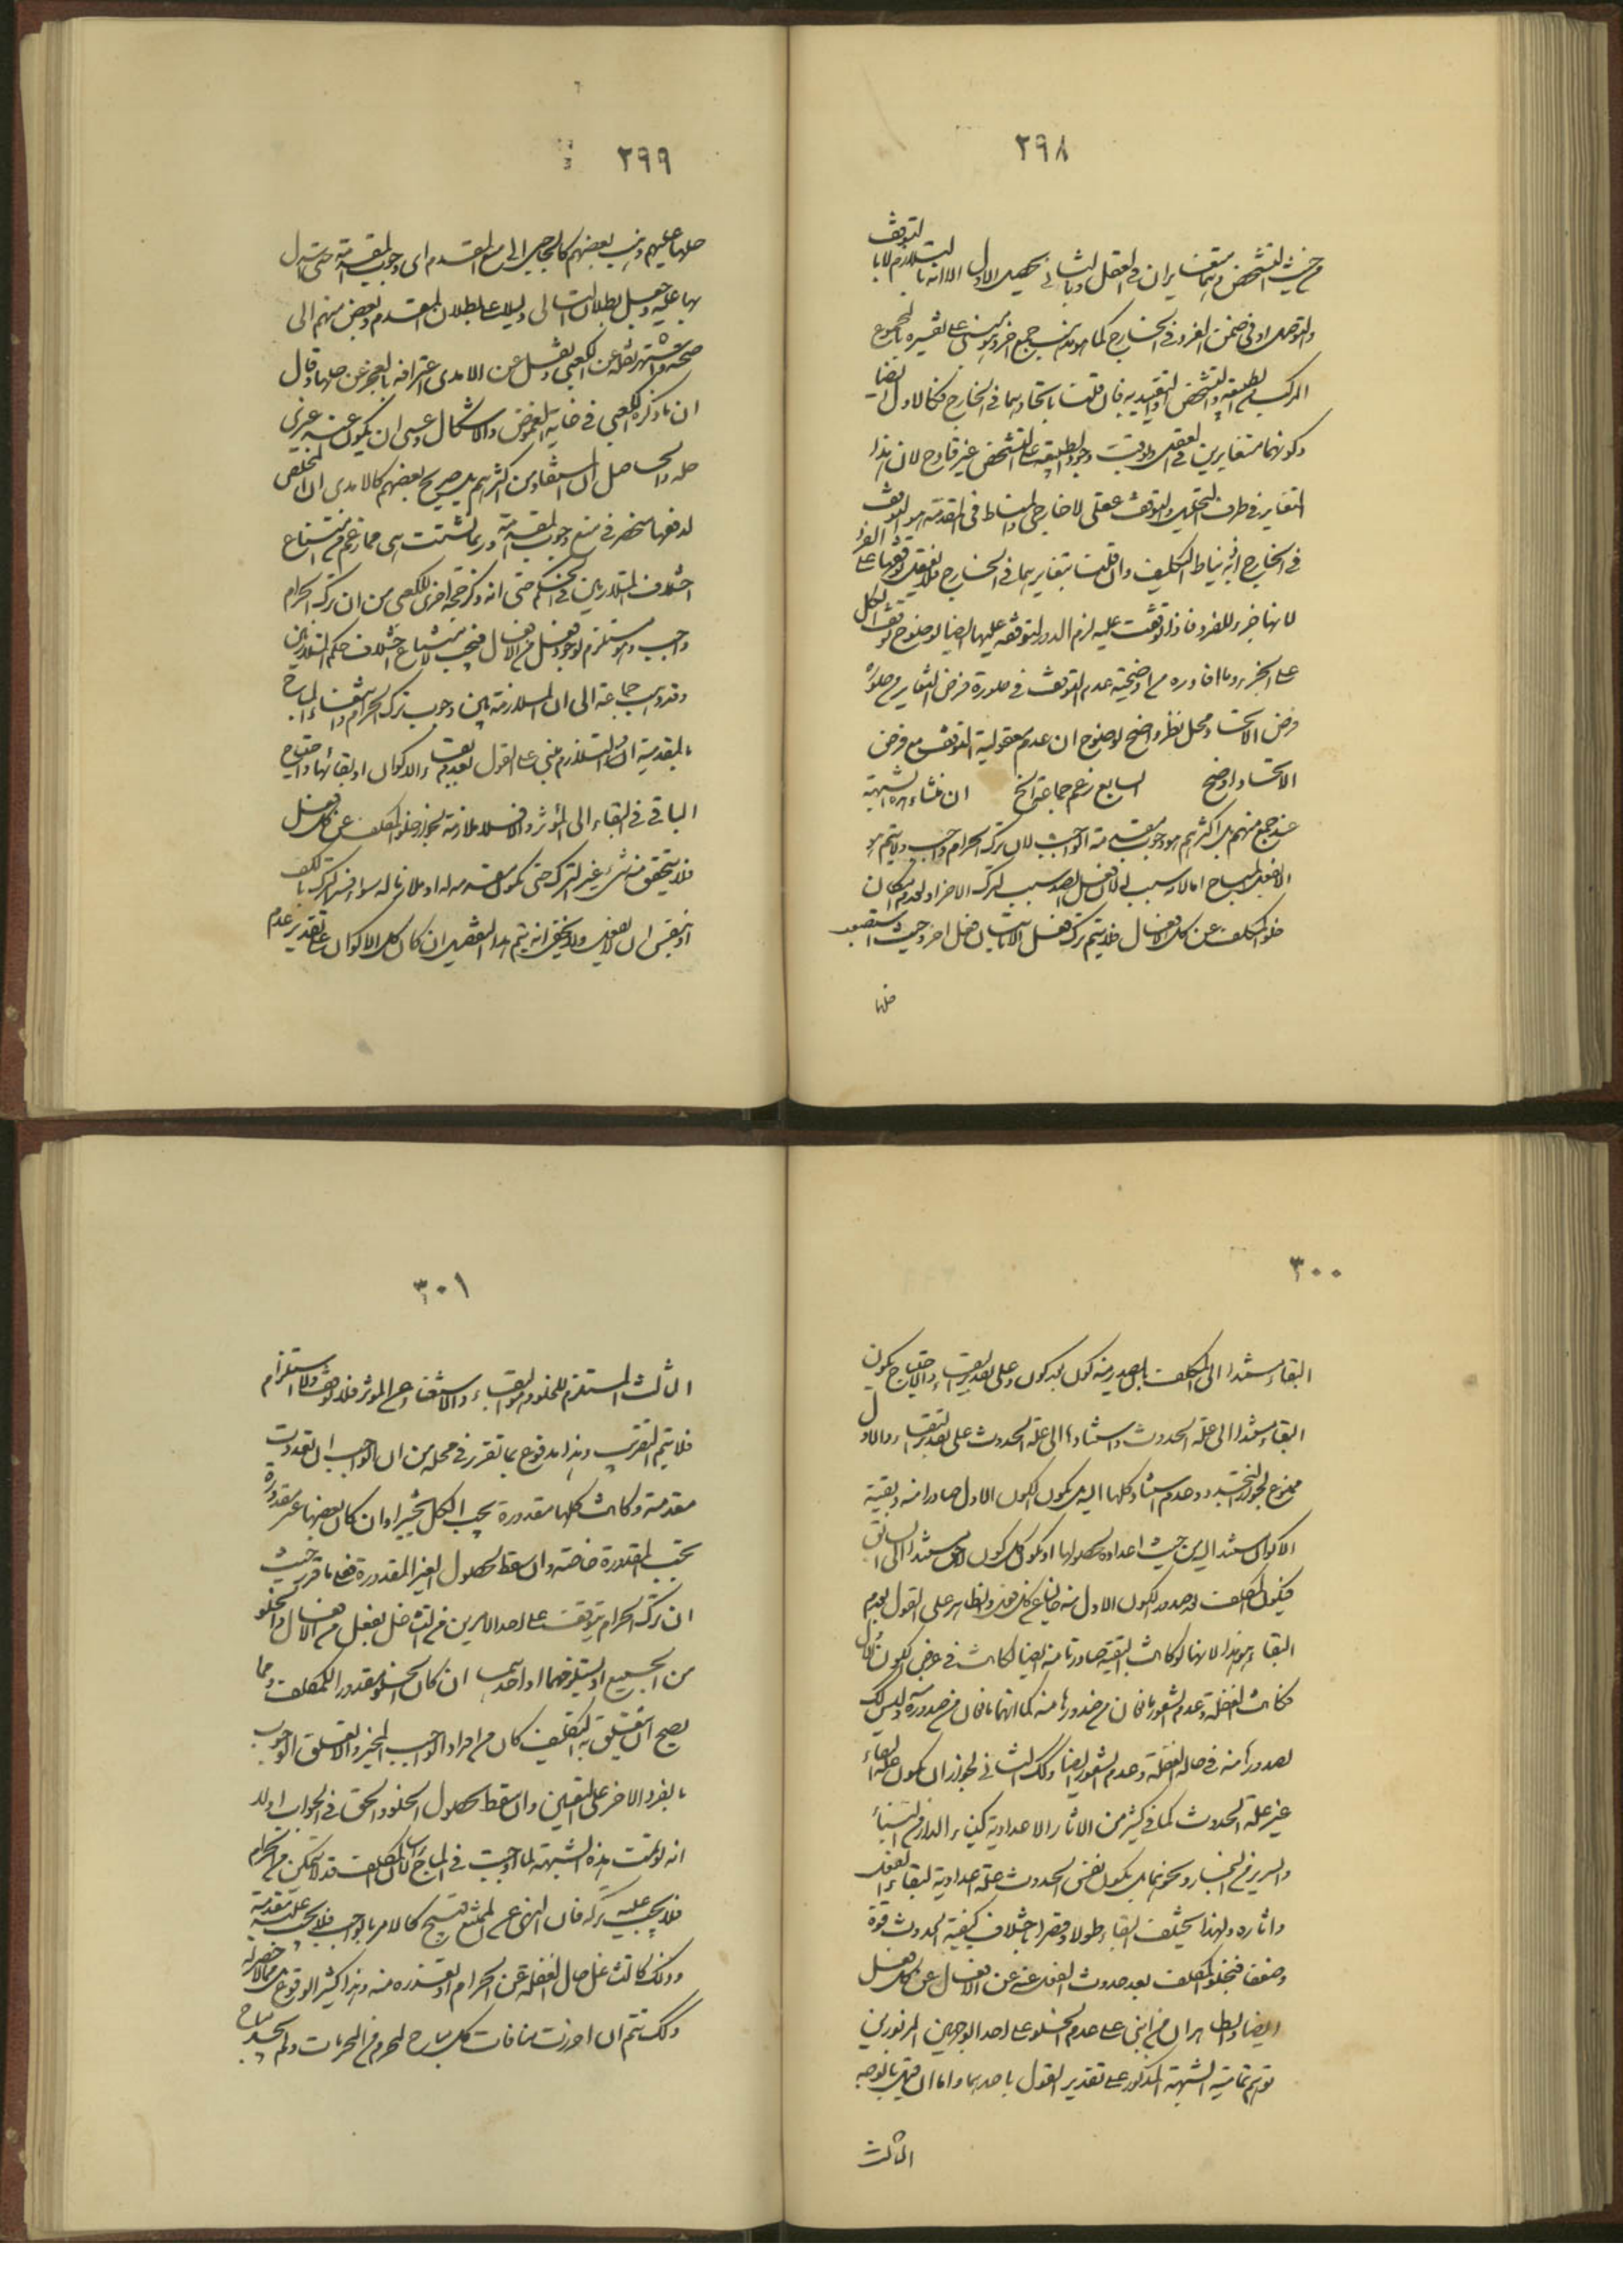 ٢٩٨
من حيث التشخص وهما متغايران في العقل وبالثاني يحصل الاول الا انه بالتلازم لا بالتوقف
والتوصل او في ضمن الفرد في الخارج كما هو مذهب جمع اخر وهو مبنى على تفسيره بالمجموع
المركب من الطبيعة والتشخص والتقييد به فان قلت باتحادهما في الخارج فكالاول ايضا
وكونهما متغايرين في العقل وتوقف وجود الطبيعة على التشخص غير قادح لان هذا
التغاير في ظرف التحليل والتوقف عقلي لا خارجي والمناط في المقدمة هو التوقف
في الخارج اذ به يناط التكليف وان قلت بتغايرهما في الخارج فلا يعقل توقفها على الفرد
لانها جزء للفرد فاذا توقفت عليه لزم الدور لتوقفه عليها ايضا لوضوح توقف الكل
على الجزء وما افاده من اوضحية عدم التوقف في صورة فرض التغاير من صورة
فرض الاتحاد محل نظر واضح لوضوح ان عدم معقولية التوقف مع فرض
الاتحاد اوضح السابع زعم جماعة الخ ان منشاء هذه الشبهة
عند جمع منهم بل اكثرهم هو وجوب مقدمة الواجب لان ترك الحرام واجب ولا يتم هو
الا بفعل المباح اما لانه سبب لان فعل الضد سبب لترك الاخر او لعدم امكان
خلو المكلف عن كل الافعال فلا يتم ترك فعل الا باتيان فعل اخر وحيث استصعب
حلها
٢٩٩
حلها عليهم ذهب بعضهم كالحاجبي الى منع المقدم اى وجوب المقدمة حتى استدل
بها عليه وجعل بطلان التالي دليلا على بطلان المقدم وبعض منهم الى
صحته واشتهر نقله عن الكعبي ونقل عن الامدى اعترافه بالعجز عن حلها وقال
ان ما ذكره الكعبي في غاية الغموض والاشكال وعسى ان يكون عند غيرى
حله والحاصل ان المستفاد من اكثرهم بل صريح بعضهم كالامدى ان المخلص
لدفعها منحصر في منع وجوب المقدمة وربما تشتت اى مما زعم من امتناع
اختلاف المتلازمين في الحكم حتى انه ذكر حجة اخرى للكعبي من ان ترك الحرام
واجب وهو مستلزم لوجود فعل من الافعال فيجب لامتناع اختلاف حكم المتلازمين
وقد ذهب جماعة الى ان الملازمة بين وجوب ترك الحرام واتصاف المباح
بالمقدمية او التلازم مبنى على القول بعدم بقاء الاكوان او بقائها واحتياج
الباقي في البقاء الى المؤثر والا فلا ملازمة لجواز خلو المكلف عن كل فعل
فلا يتحقق منه شيء غير الترك حتى يكون مقدمة له او ملازما له سواء فسر الترك بالكف
او بنفس ان لا يفعل ولا يخفى انه يتم هذا التفصيل ان كان كل الاكوان على تقدير عدم
٣٠٠
البقاء مستندا الى المكلف بل يصدر منه كون بعد كون وعلى تقدير البقاء والاحتياج يكون
البقاء مستندا الى علة الحدوث واستناده الى علة الحدوث على تقدير البقاء والاول
ممنوع لجواز التجدد وعدم استناد كلها اليه بل يكون الكون الاول صادرا منه وبقية
الاكوان مستند اليه من حيث اعداده لحصولها او يكون كل كون لاحق مستندا الى السابق
فيكون المكلف بعد صدور الكون الاول منه خاليا عن كل فعل والظاهر على القول بعدم
البقاء هو هذا لانها لو كانت البقية صادرة منه ايضا لكانت في عرض الكون الاول
فكانت الغفلة وعدم الشعور مانعان من صدورها منه كما انهما مانعان من صدوره وليس كذلك
لصدورها منه في حالة الغفلة وعدم الشعور ايضا وكذلك الثاني لجواز ان يكون علة البقاء
غير علة الحدوث كما في كثير من الاثار الاعدادية كبناء الدار من البناء
والسرير من النجار ونحوهما بل يكون نفس الحدوث علة اعدادية لبقاء الفعل
واثاره ولهذا يختلف البقاء طولا وقصرا باختلاف كيفية الحدوث قوة
وضعفا فيخلو المكلف بعد حدوث الفعل عنه عن الافعال عن كل فعل
ايضا والظاهر ان من ابنى على عدم الخلو على احد الوجهين المزبورين
توهم تمامية الشبهة المذكورة على تقدير القول باحدهما واما ان قيل بالوجه
الثالث
٣٠١
الثالث المستلزم للخلو وهو البقاء والاستغناء عن المؤثر فلا توقف ولا استلزام
فلا يتم التقريب وهذا مدفوع بما تقرر في محله من ان الواجب ان تعددت
مقدمته وكانت كلها مقدورة يجب الكل تخييرا وان كان بعضها غير مقدورة
تجب المقدورة خاصة وان سقط بحصول الغير المقدورة فعلى ما قرر حيث
ان ترك الحرام يتوقف على احد الامرين من التشاغل بفعل من الافعال والخلو
من الجميع او يستلزمهما او احدهما ان كان الخلو مقدورا للمكلف ومما
يصح ان يتعلق به التكليف كان من افراد الواجب المخير والا تعلق الوجوب
بالفرد الاخر على التعيين وان سقط بحصول الخلو والحق في الجواب اولا
انه لو تمت هذه الشبهة لما اوجبت في المباح لان المكلف قد لا يتمكن من الحرام
فلا يجب عليه تركه فان النهى عن الممتنع قبيح كالامر بالواجب فلا يجب عليه مقدمته
وذلك كالتشاغل حال الغفلة عن الحرام او تعذره منه وهذا كثير الوقوع
وكذلك تتم ان احرزت منافات كل مباح لمحرم من المحرمات ولم نجد مباح